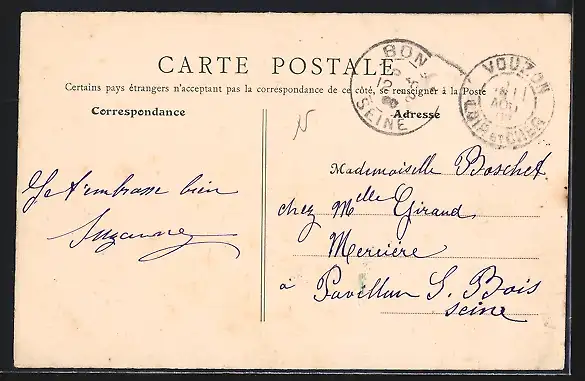 CARTE POSTALE
Certains pays étrangers n'acceptant pas la correspondance de ce côté, se renseigner à la Poste
Correspondance
Adresse
BON
SEINE
VOUZON
AOU
LOIR ET CHER
N
Je t'embrasse bien
Suzanne
Mademoiselle Boschet
chez Melle Giraud
Mercière
à Pavillon S. Bois
Seine